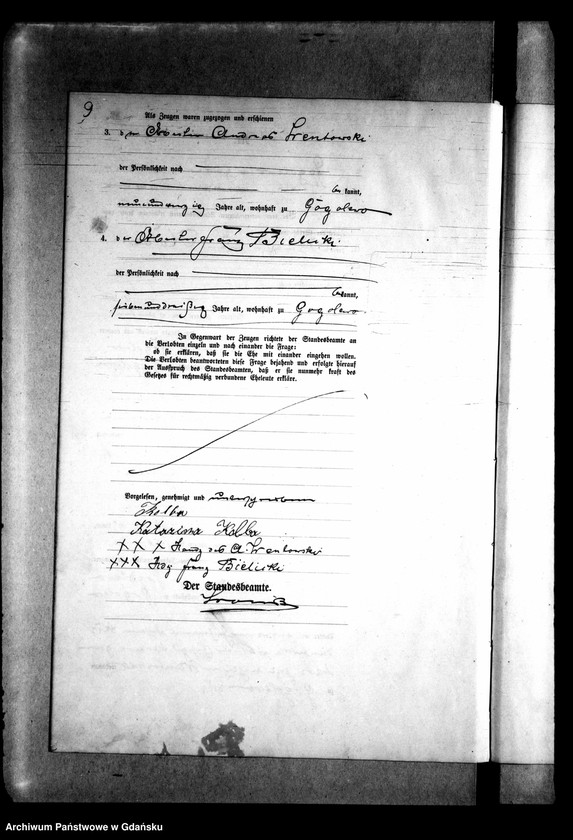 9
Als Zeugen waren zugezogen und erschienen
3. der Andreas Trentowski
der Persönlichkeit nach
be kannt,
neunundzwanzig Jahre alt, wohnhaft zu Gogolewo
4. der Franz Bielicki
der Persönlichkeit nach
be kannt,
siebenunddreißig Jahre alt, wohnhaft zu Gogolewo.
In Gegenwart der Zeugen richtete der Standesbeamte an
die Verlobten einzeln und nach einander die Frage:
ob sie erklären, daß sie die Ehe mit einander eingehen wollen.
Die Verlobten beantworteten diese Frage bejahend und erfolgte hierauf
der Ausspruch des Standesbeamten, daß er sie nunmehr kraft des
Gesetzes für rechtmäßig verbundene Eheleute erkläre.
Vorgelesen, genehmigt und unterschrieben
Kolba
Katarzina Kolba
XXX Handz. des A. Trentowski
XXX Hdz Franz Bielicki
Der Standesbeamte.
Archiwum Państwowe w Gdańsku